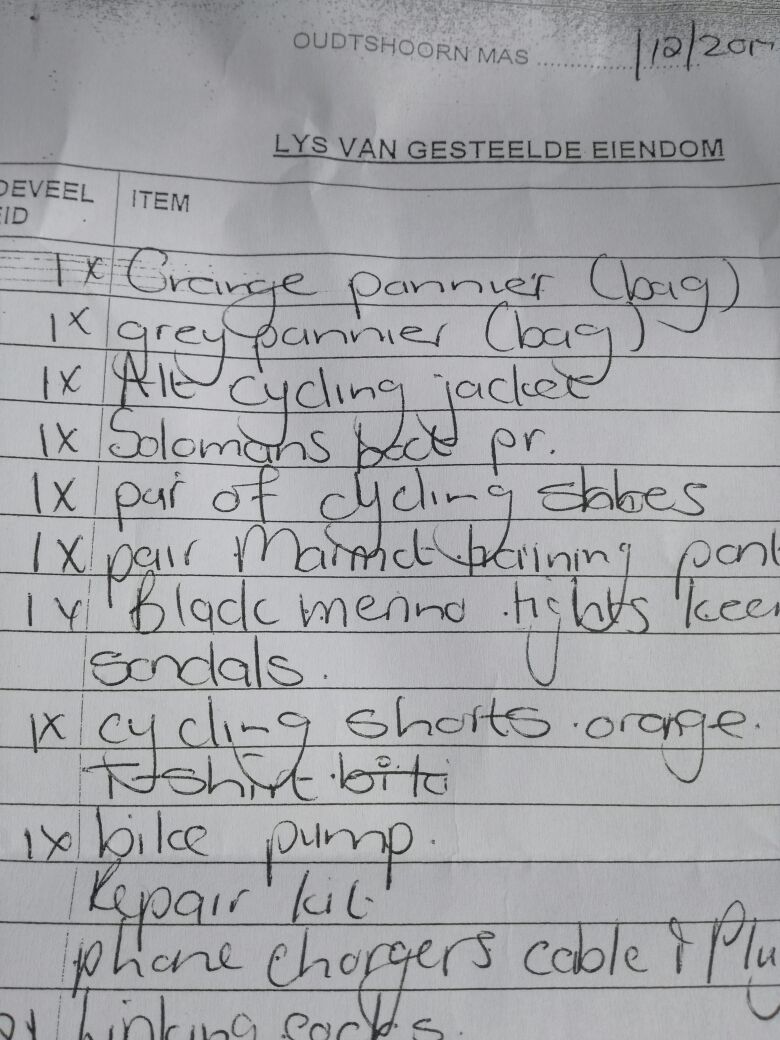 OUDTSHOORN MAS ............ /12/20
LYS VAN GESTEELDE EIENDOM
DEVEEL
EID
ITEM
1x Orange pannier (bag)
1x grey pannier (bag)
1x Alt cycling jacket
1x Solomans boot pr.
1x pair of cycling
1x pair Marmot training pant
1x Black merino tights keen
sandals.
1x cycling shorts. orange.
T-shirt.
1x bike pump.
Repair kit
phone chargers cable & Plu
hinking socks.